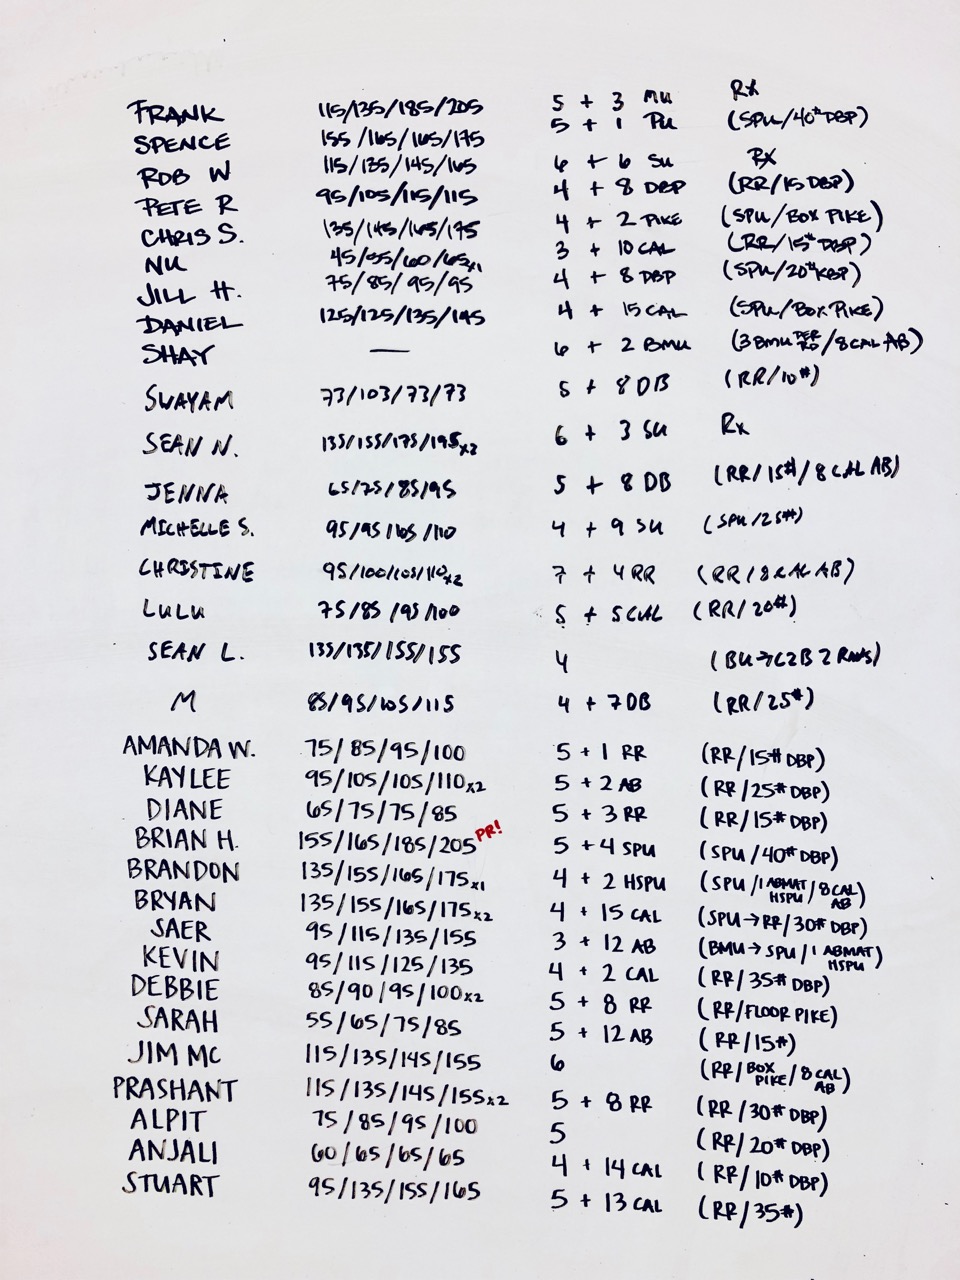 FRANK 115/135/185/205 5 + 3 MU RX
SPENCE 155/165/165/175 5 + 1 PU (SPU/40# DBP)
ROB W 115/135/145/165 6 + 6 SU RX
PETE R 95/105/115/115 4 + 8 DBP (RR/15 DBP)
CHRIS S. 135/145/165/175 4 + 2 PIKE (SPU/BOX PIKE)
NU 45/55/60/65x1 3 + 10 CAL (RR/15# DBP)
JILL H. 75/85/95/95 4 + 8 DBP (SPU/20# KBP)
DANIEL 125/125/135/145 4 + 15 CAL (SPU/BOX PIKE)
SHAY — 6 + 2 BMU (3 BMU PER RD/8 CAL AB)
SWAYAM 73/103/73/73 5 + 8 DB (RR/10#)
SEAN N. 135/155/175/195x2 6 + 3 SU Rx
JENNA 65/75/85/95 5 + 8 DB (RR/15#/8 CAL AB)
MICHELLE S. 95/95/105/110 4 + 9 SU (SPU/25#)
CHRISTINE 95/100/105/110x2 7 + 4 RR (RR/8 CAL AB)
LULU 75/85/95/100 5 + 5 CAL (RR/20#)
SEAN L. 135/135/155/155 4 (BU→C2B 2 RNDS)
M 85/95/105/115 4 + 7 DB (RR/25#)
AMANDA W. 75/85/95/100 5 + 1 RR (RR/15# DBP)
KAYLEE 95/105/105/110x2 5 + 2 AB (RR/25# DBP)
DIANE 65/75/75/85 5 + 3 RR (RR/15# DBP)
BRIAN H. 155/165/185/205 PR! 5 + 4 SPU (SPU/40# DBP)
BRANDON 135/155/165/175x1 4 + 2 HSPU (SPU/1 ABMAT HSPU/8 CAL AB)
BRYAN 135/155/165/175x2 4 + 15 CAL (SPU→RR/30# DBP)
SAER 95/115/135/155 3 + 12 AB (BMU→SPU/1 ABMAT HSPU)
KEVIN 95/115/125/135 4 + 2 CAL (RR/35# DBP)
DEBBIE 85/90/95/100x2 5 + 8 RR (RR/FLOOR PIKE)
SARAH 55/65/75/85 5 + 12 AB (RR/15#)
JIM MC 115/135/145/155 6 (RR/BOX PIKE/8 CAL AB)
PRASHANT 115/135/145/155x2 5 + 8 RR (RR/30# DBP)
ALPIT 75/85/95/100 5 (RR/20# DBP)
ANJALI 60/65/65/65 4 + 14 CAL (RR/10# DBP)
STUART 95/135/155/165 5 + 13 CAL (RR/35#)